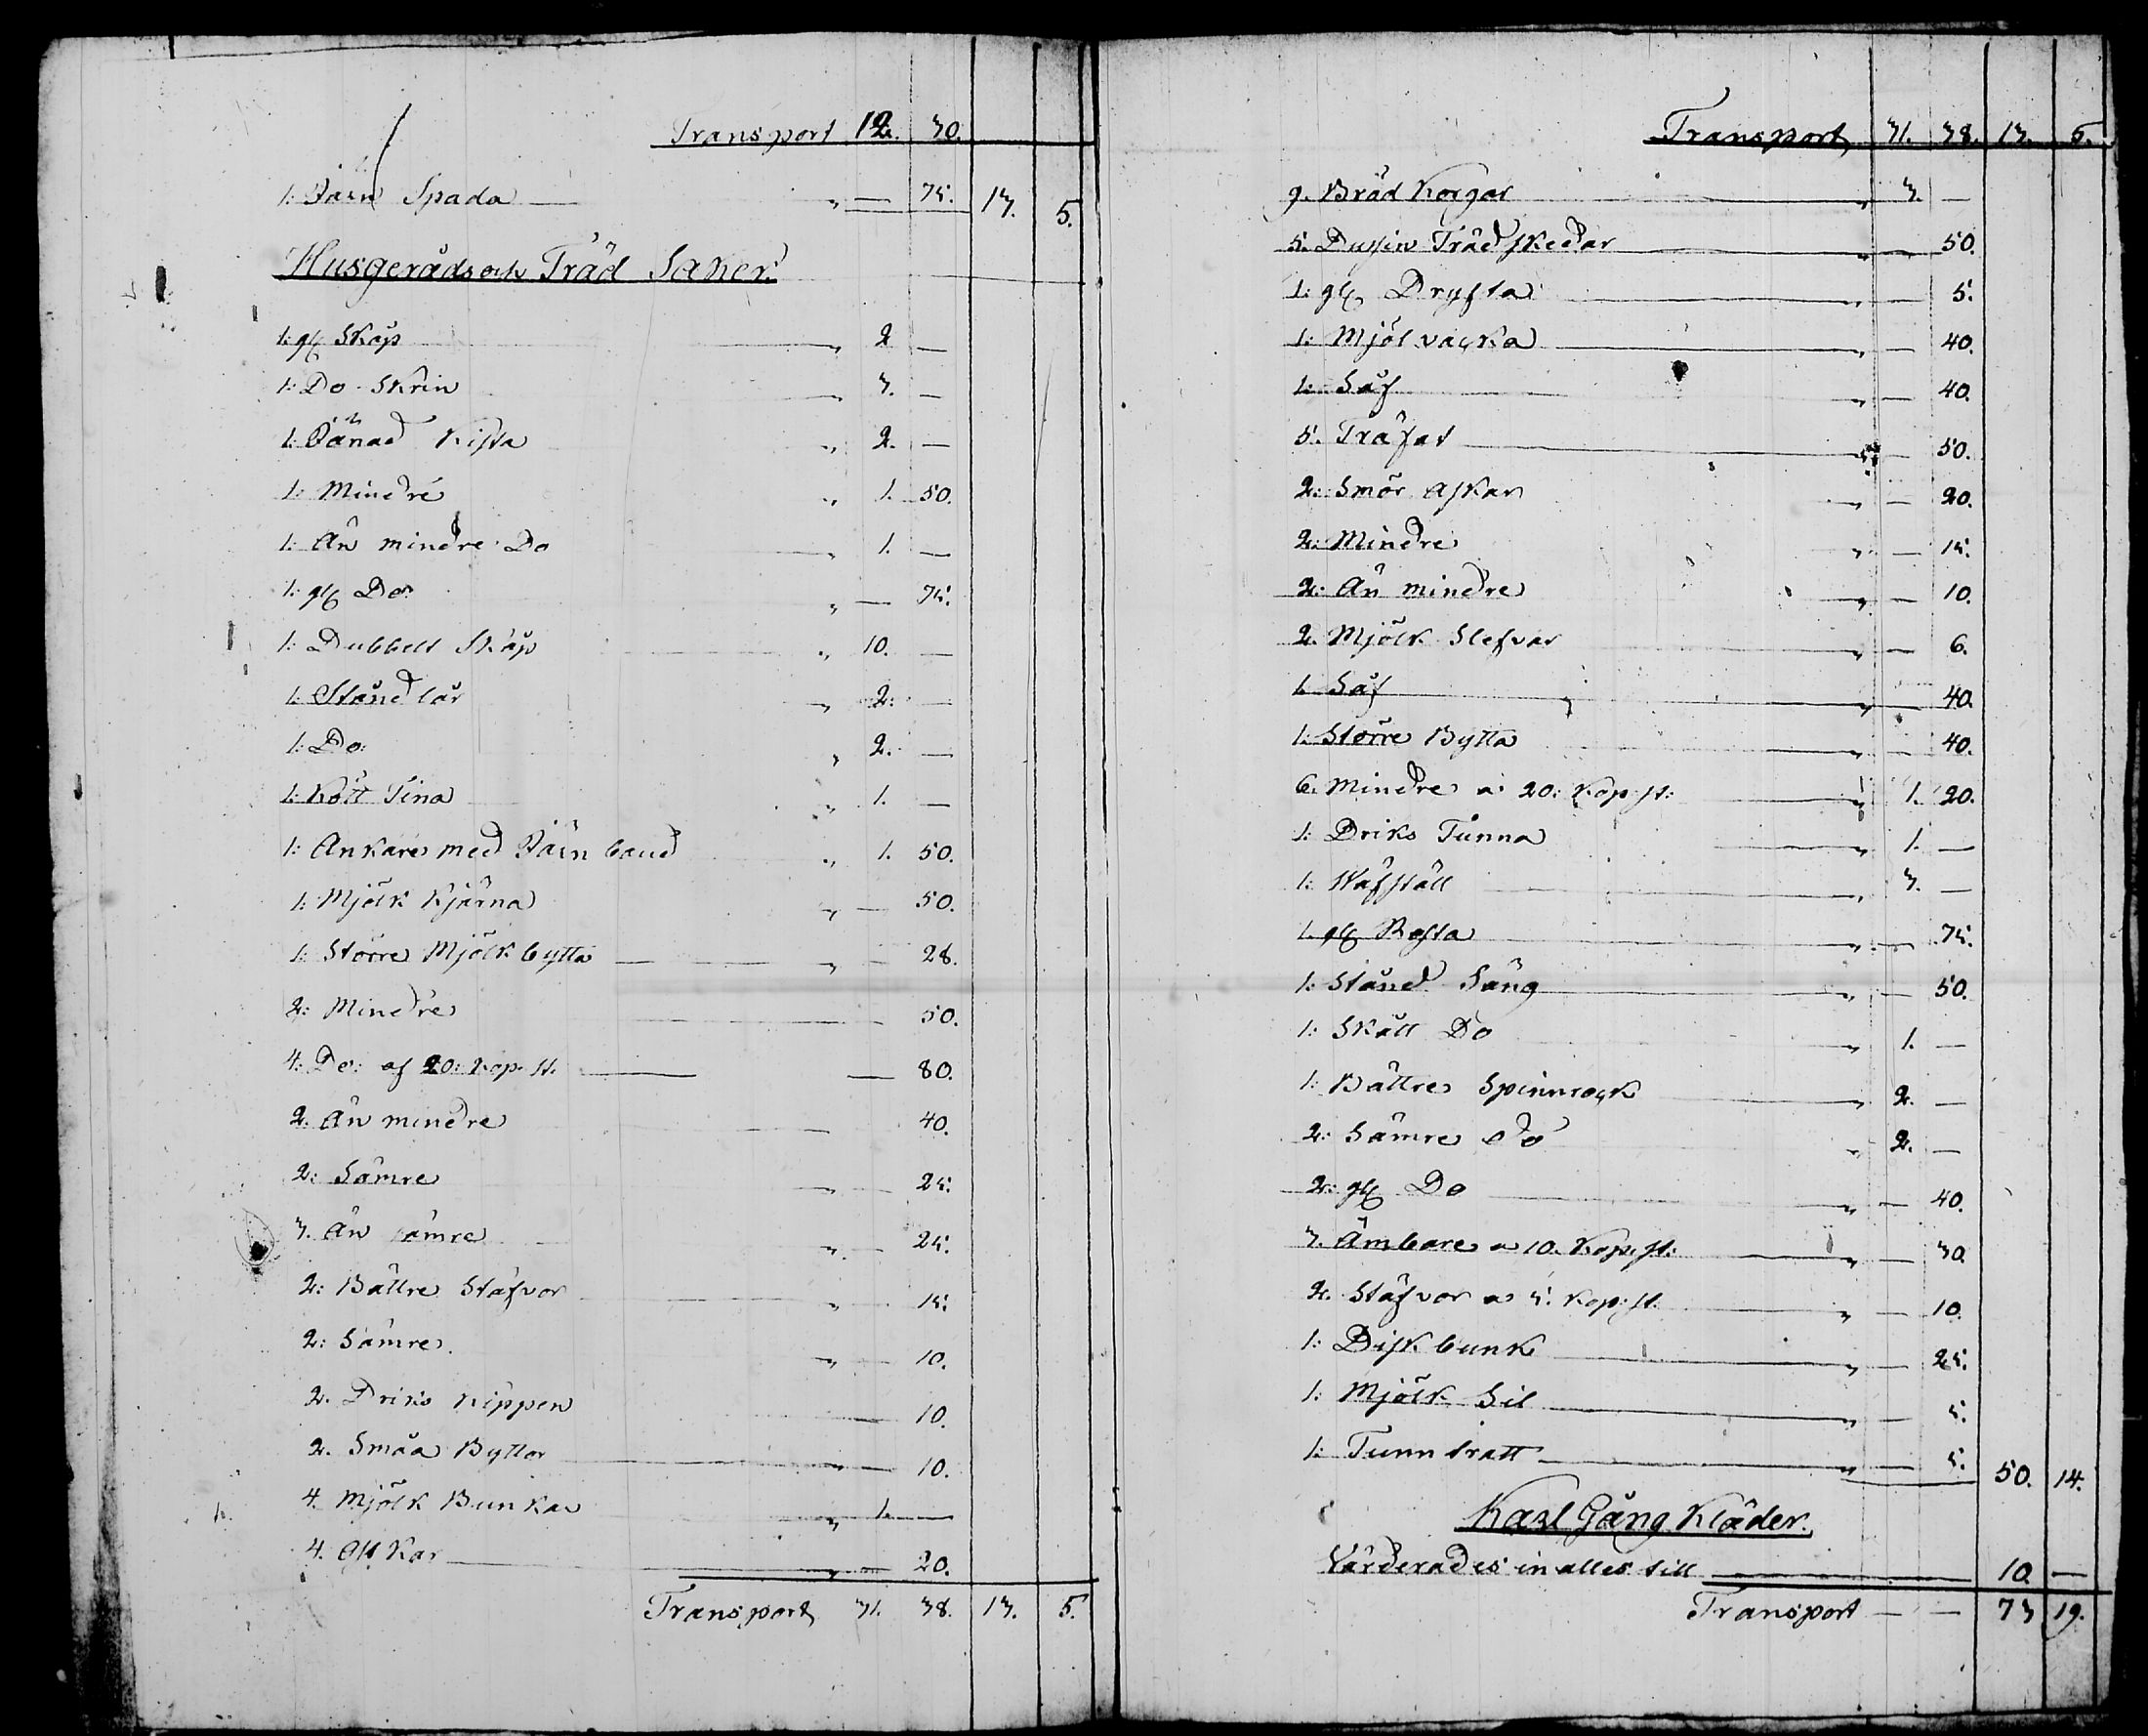 Transport 12. 30.
1: Järn Spada — " — 75. 13. 5.
Husgeråds och Träd Saker.
1: gl Skåp " 2 —
1: Do Skrin " 3. —
1: Jänad Kista " 2. —
1: Mindre " 1. 50.
1: Än mindre Do " 1. —
1: gl Do: " — 75.
1: Dubbelt Skåp " 10. —
1: Stånd lår " 2: —
1: Do: " 2. —
1: Kött Tina " 1. —
1: Ankare med Järn band " 1. 50.
1: Mjölk Kjärna " — 50.
1: Större Mjölk bytta — " — 28.
2: Mindre — 50.
4: Do: af 20: Kop. st. — 80.
2. Än mindre — 40.
2: Sämre " — 25.
3. Än sämre " — 25.
2: Bättre Stäfvor " — 15.
2: Sämre. " — 10.
2. Driks Kippen — 10.
2. Småa Byttor " — 10.
4. Mjölk Bunkar " 1. —
4. Ost Kar " — 20.
Transport 31. 38. 13. 5.
Transport 31. 38. 13. 5.
9. Bräd Korgar " 3. —
5. Dussin Träd skedar " — 50.
1: gl Dryfta " — 5.
1: Mjöl vacka " — 40.
1: Såf " — 40.
5. Träfat " — 50.
2: Smör askar " — 20.
2: Mindre " — 15.
2: Än mindre " — 10.
2. Mjölk Slefvar " — 6.
1. Såf " — 40.
1: Större Bytta " — 40.
6. Mindre a: 20: Kop: st: " 1. 20.
1: Driks Tunna " 1. —
1: Wäfställ " 3. —
1. gl Rosta " — 75.
1: Stånd Säng " — 50.
1: Skåll Do " 1. —
1: Bättre Spinnrock " 2. —
2: Sämre do " 2. —
2: gl Do " — 40.
3. Ämbare a 10. Kop. st: " — 30.
2. Stäfvor a 5. Kop: st: " — 10.
1: Disk bunk " — 25.
1: Mjölk Sil " — 5.
1: Tunn tratt " — 5. 50. 14.
Karl Gång Kläder.
Värderades in alles till — 10 —
Transport — — 73 19.